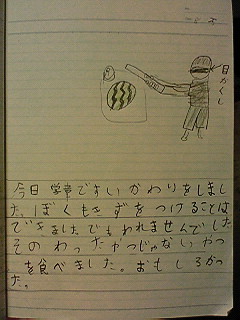 目かくし
今日学童ですいかわりをしまし
た。ぼくもきずをつけることは
できましたでもわれませんでした
そのわったやつじゃないやつ
を食べました。おもしろかっ
た。